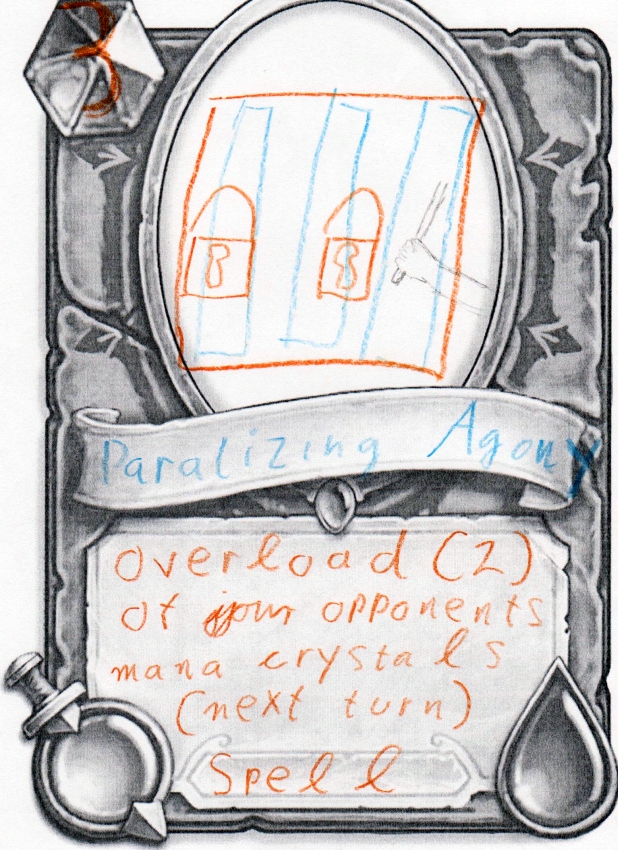 3
Paralizing Agony
overload (2)
of your opponents
mana crystals
(next turn)
Spell